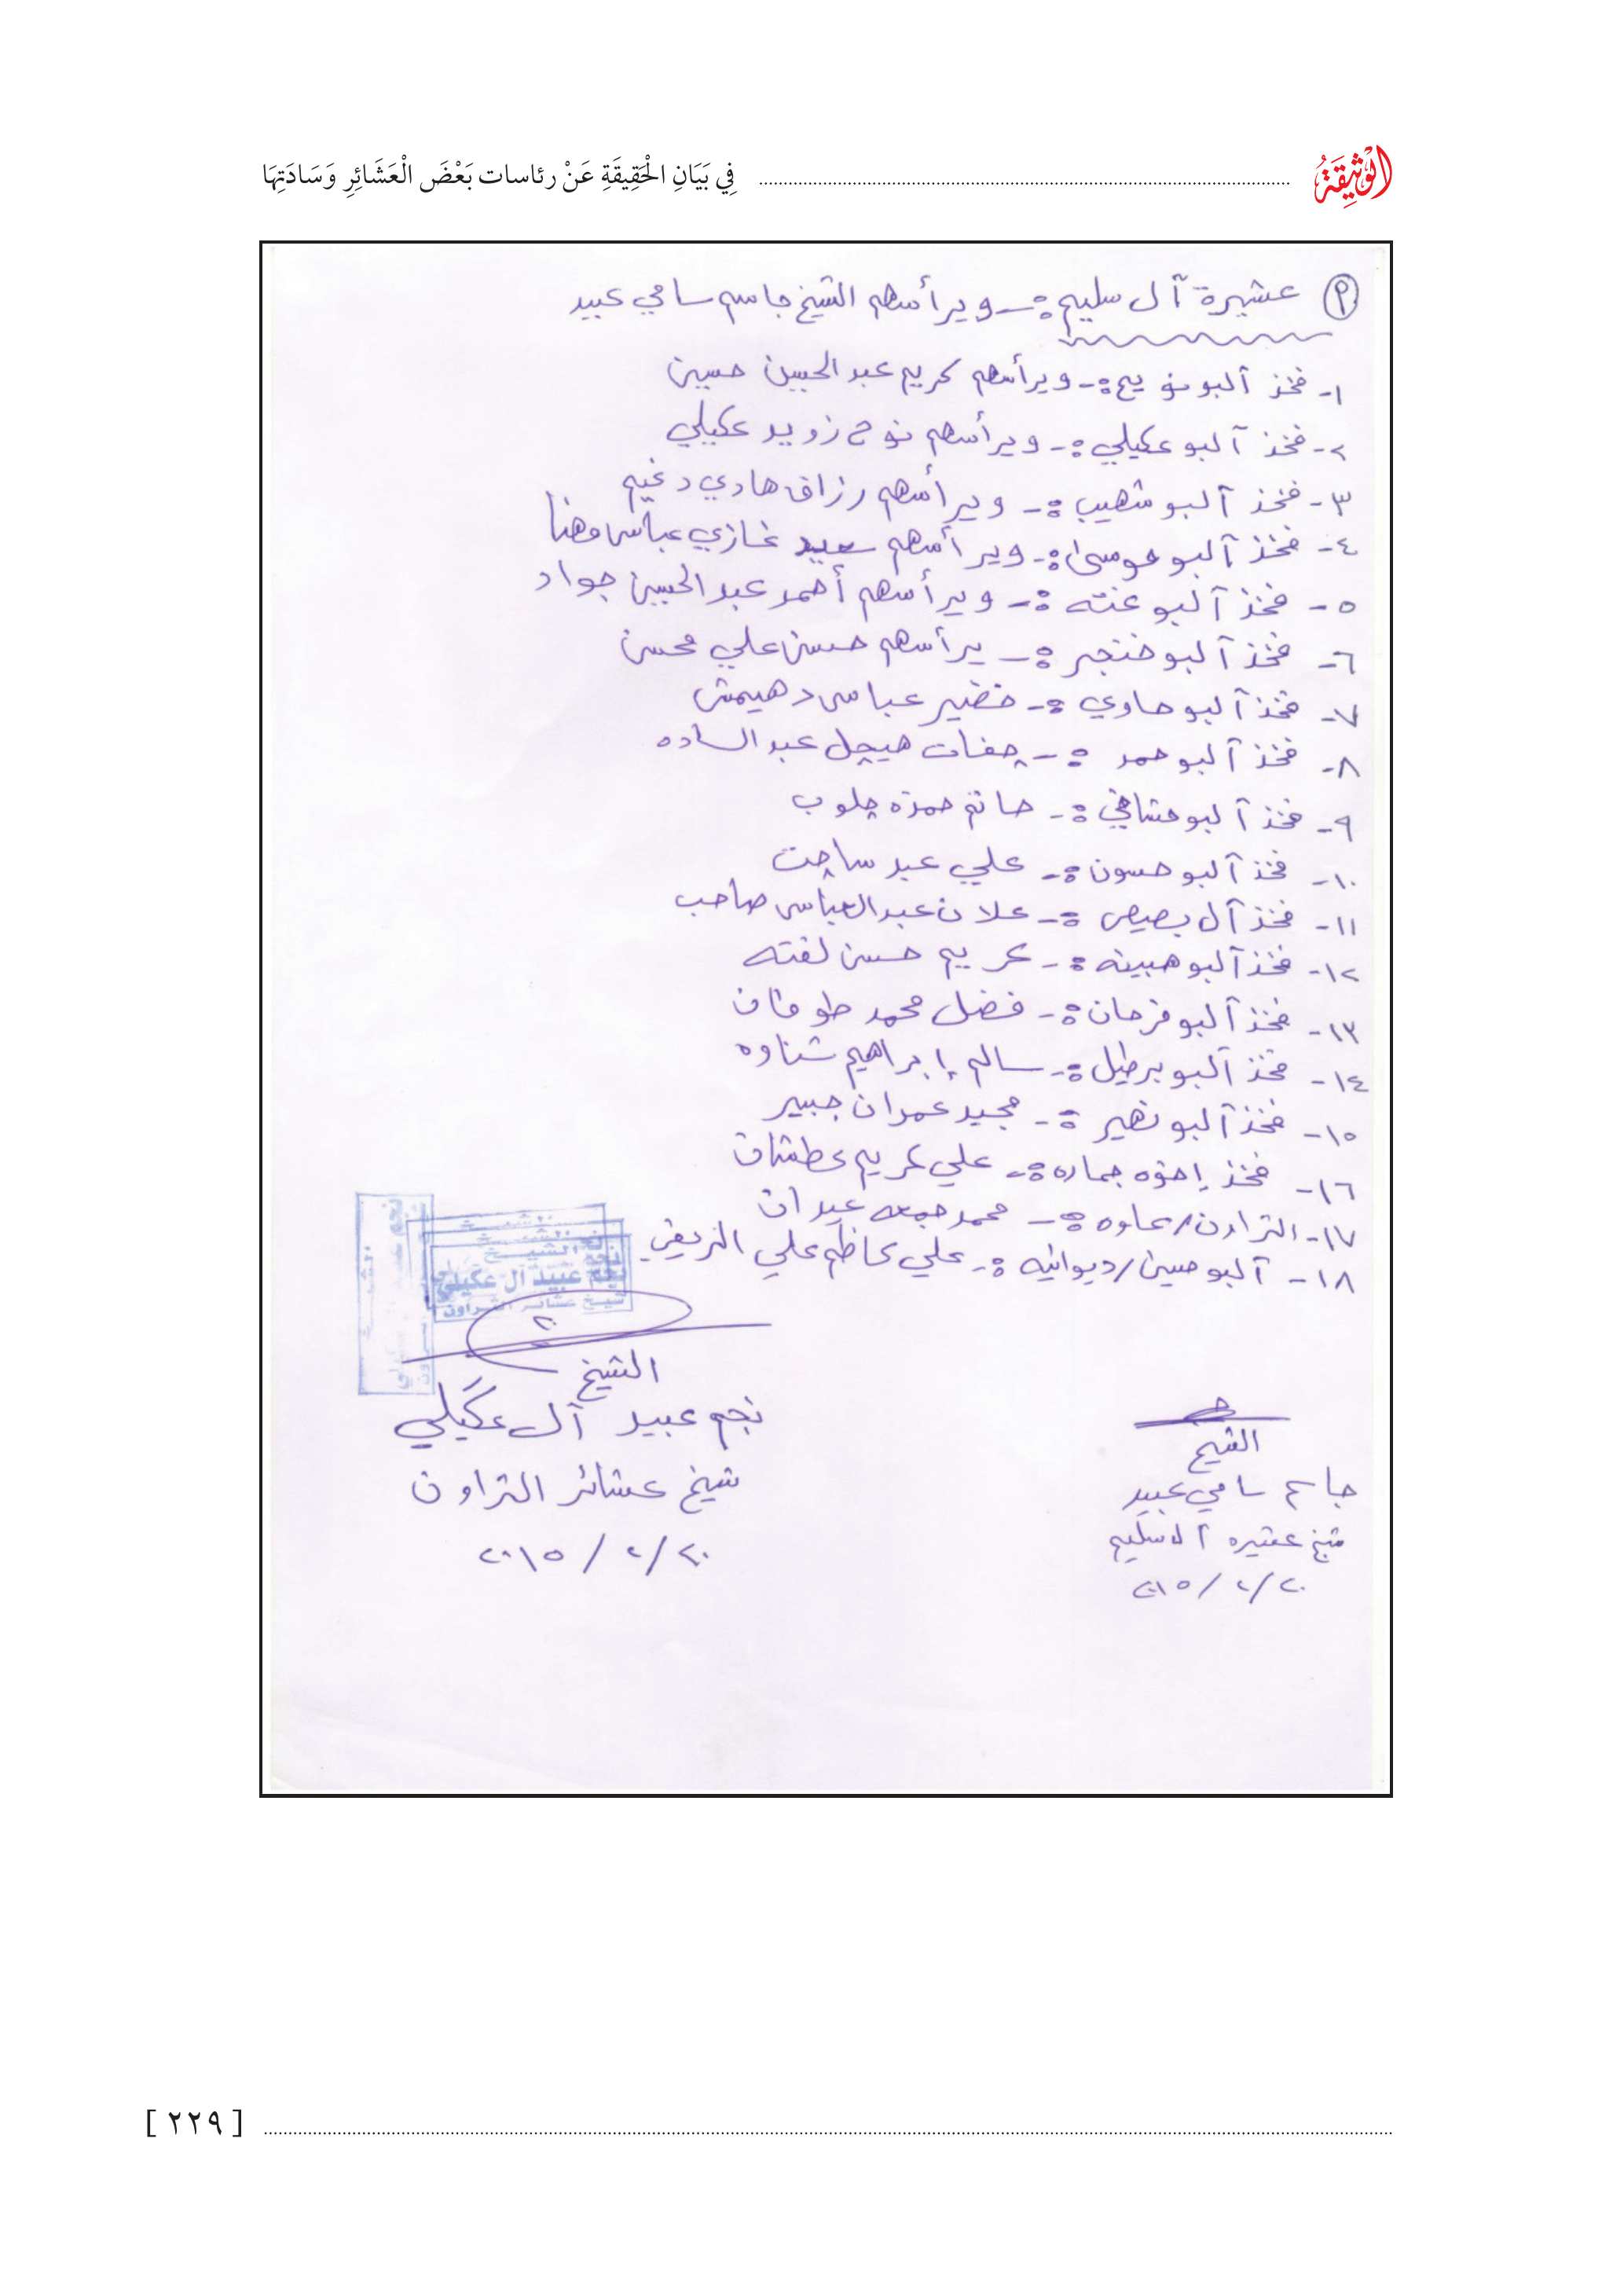 الْوَثِيقَةُ
فِي بَيَانِ الْحَقِيقَةِ عَنْ رئاسات بَعْضَ الْعَشَائِرِ وَسَادَتِهَا
٩ عشيرة آل سليم :- ويرأسهم الشيخ جاسم سامي عبيد
١- فخذ آلبو :- ويرأسهم كريم عبد الحسين حسين
٢- فخذ آلبو عكيلي :- ويرأسهم نوح زويد عكيلي
٣- فخذ آلبو شهيب :- ويرأسهم رزاق هادي دغيم
٤- فخذ آلبو موسى :- ويرأسهم سعيد غازي عباس مهنا
٥- فخذ آلبو عنته :- ويرأسهم أحمد عبد الحسين جواد
٦- فخذ آلبو خنجر :- يرأسهم حسن علي محسن
٧- فخذ آلبو حاوي :- خضير عباس دهيمش
٨- فخذ آلبو حمد :- چفات هيچل عبد الساده
٩- فخذ آلبو :- حاتم حمزه چلوب
١٠- فخذ آلبو حسون :- علي عبد ساچت
١١- فخذ آل بصيص :- علان عبد العباس صاحب
١٢- فخذ آلبو هبينه :- كريم حسن لفته
١٣- فخذ آلبو فرحان :- فضل محمد طوفان
١٤- فخذ آلبو برطيل :- سالم إبراهيم شناوه
١٥- فخذ آلبو نهير :- مجيد عمران جبير
١٦- فخذ إخوه جماره :- علي كريم عطشان
١٧- التراون/سماوه :- محمد جمعه عيدان
١٨- آلبو حسين/ديوانيه :- علي كاظم علي
الشيخ
نجم عبيد آل عكيلي
شيخ عشائر التراون
الشيخ
نجم عبيد آل عگيلي
شيخ عشائر التراون
٢٠/٢/٢٠١٥
الشيخ
جاسم سامي عبيد
شيخ عشيره آل سليم
٢٠/٢/٢٠١٥
[ ٢٢٩ ]